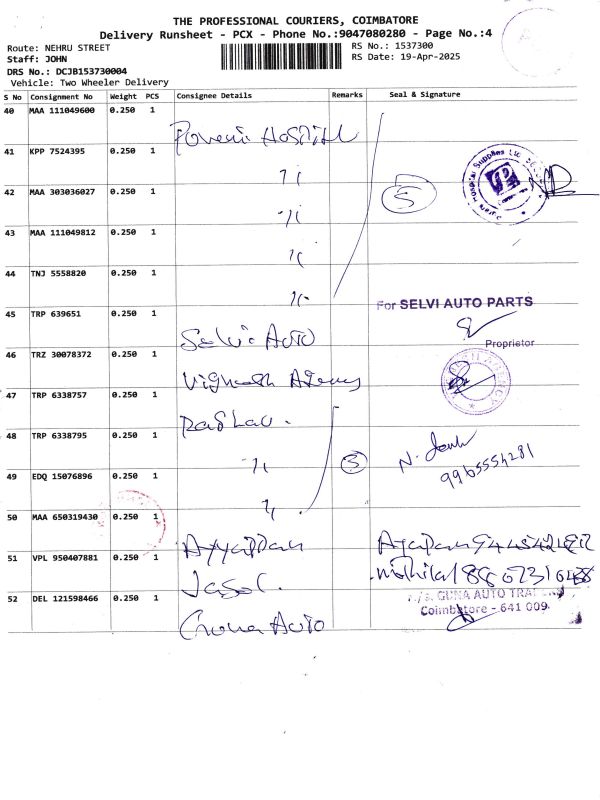 THE PROFESSIONAL COURIERS, COIMBATORE
Delivery Runsheet - PCX - Phone No.:9047080280 - Page No.:4
Route: NEHRU STREET
Staff: JOHN
DRS No.: DCJB153730004
Vehicle: Two Wheeler Delivery
RS No.: 1537300
RS Date: 19-Apr-2025
S No Consignment No Weight PCS Consignee Details Remarks Seal & Signature
40 MAA 111049600 0.250 1
Hospital
41 KPP 7524395 0.250 1
42 MAA 303036027 0.250 1
5
Hospital Supplies
43 MAA 111049812 0.250 1
44 TNJ 5558820 0.250 1
For SELVI AUTO PARTS
45 TRP 639651 0.250 1
Selvi Auto
Proprietor
46 TRZ 30078372 0.250 1
Vignesh Agency
AGENCY
47 TRP 6338757 0.250 1
48 TRP 6338795 0.250 1
3
9965554281
49 EDQ 15076896 0.250 1
50 MAA 650319430 0.250 1
Ayyappan
51 VPL 950407881 0.250 1
52 DEL 121598466 0.250 1
GUNA AUTO
Coimbatore - 641 009.
Guna Auto